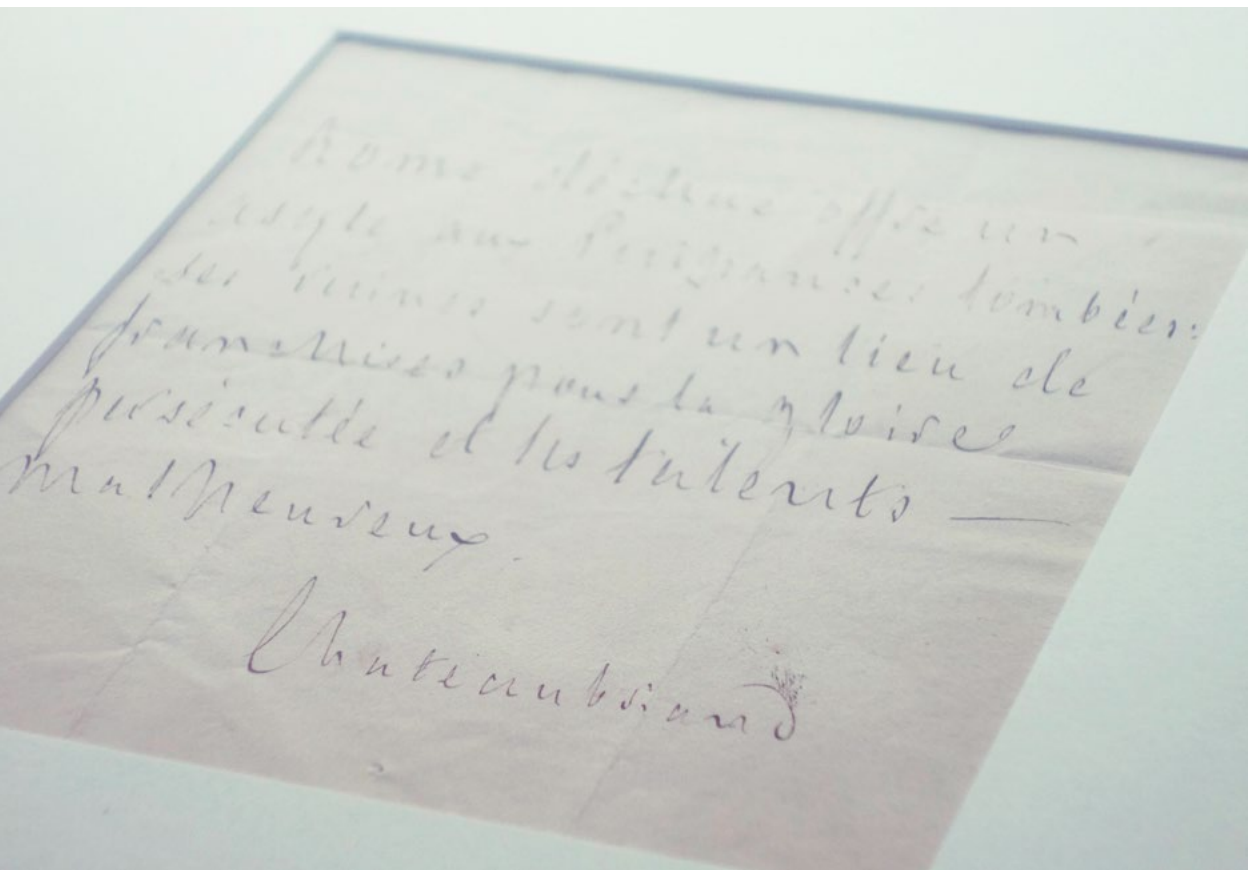 Rome détrue offre un
asyle aux Puissances tombées:
ses ruines sont un lieu de
franchises pour la gloire
persécutée et les talents —
malheureux.
Chateaubriand